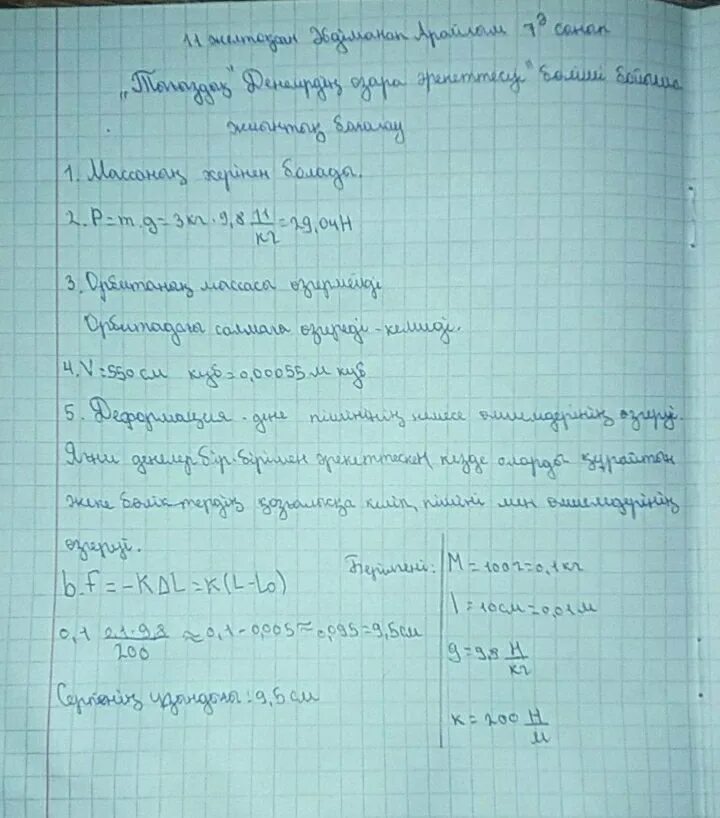 11 желтоқсан Әбдіманап Арайлым 7ᵊ сынып
"Тоғыздақ" Денелердің өзара әрекеттесуі" бөлімі бойынша
жиынтық бағалау
1. Массаның жерінен болады.
2. P=m.g=3кг·9,8 11/кг=29,04Н
3. Орбитаның массасы өзгермейді
Орбитадағы салмағы өзгереді-кемиді.
4. V=550 см куб=0,00055 м куб
5. Деформация-дене пішінінің немесе өлшемдерінің өзгеруі.
Яғни денелер бір-бірімен әрекеттескен кезде оларды құрайтын
жеке бөліктердің қозғалысқа келіп, пішіні мен өлшемдерінің
өзгеруі.
6. F=-KΔL=K(L-L0)
0,1 0,1·9,8/200 ≈0,1-0,005≈0,095=9,5см
Серпенің ұзындығы: 9,5 см
Берілгені: M=100г=0,1кг
l=10см=0,01м
g=9,8 Н/кг
к=200 Н/м